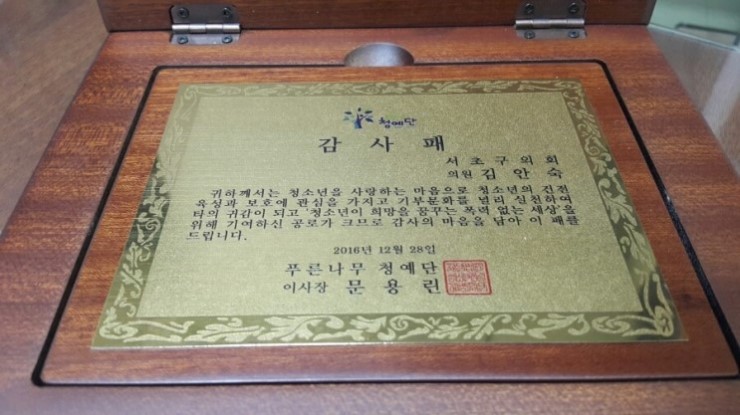 청예단
감사패
서초구의회
의원 김안숙
귀하께서는 청소년을 사랑하는 마음으로 청소년의 건전
육성과 보호에 관심을 가지고 기부문화를 널리 실천하여
타의 귀감이 되고 '청소년이 희망을 꿈꾸는 폭력 없는 세상'을
위해 기여하신 공로가 크므로 감사의 마음을 담아 이 패를
드립니다.
2016년 12월 28일
푸른나무 청예단
이사장 문용린